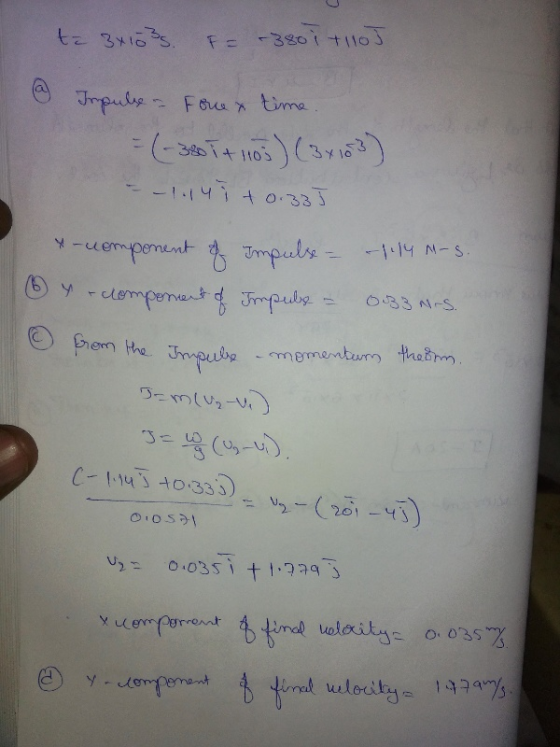 t = 3×10⁻³s. F = -380i̅ + 110j̅
ⓐ Impulse = Force × time.
= (-380i̅ + 110j̅) (3×10⁻³)
= -1.14i̅ + 0.33j̅
x-component of Impulse = -1.14 N-S.
ⓑ Y-component of Impulse = 0.33 N-S.
ⓒ from the Impulse-momentum theorm.
J = m(v₂-v₁)
J = w/g (v₂-v₁).
(-1.14j̅ + 0.33j̅) / 0.0571 = v₂ - (20i̅ - 4j̅)
v₂ = 0.035i̅ + 1.779j̅
x component of final velocity = 0.035 m/s.
ⓓ Y-component of final velocity = 1.779 m/s.